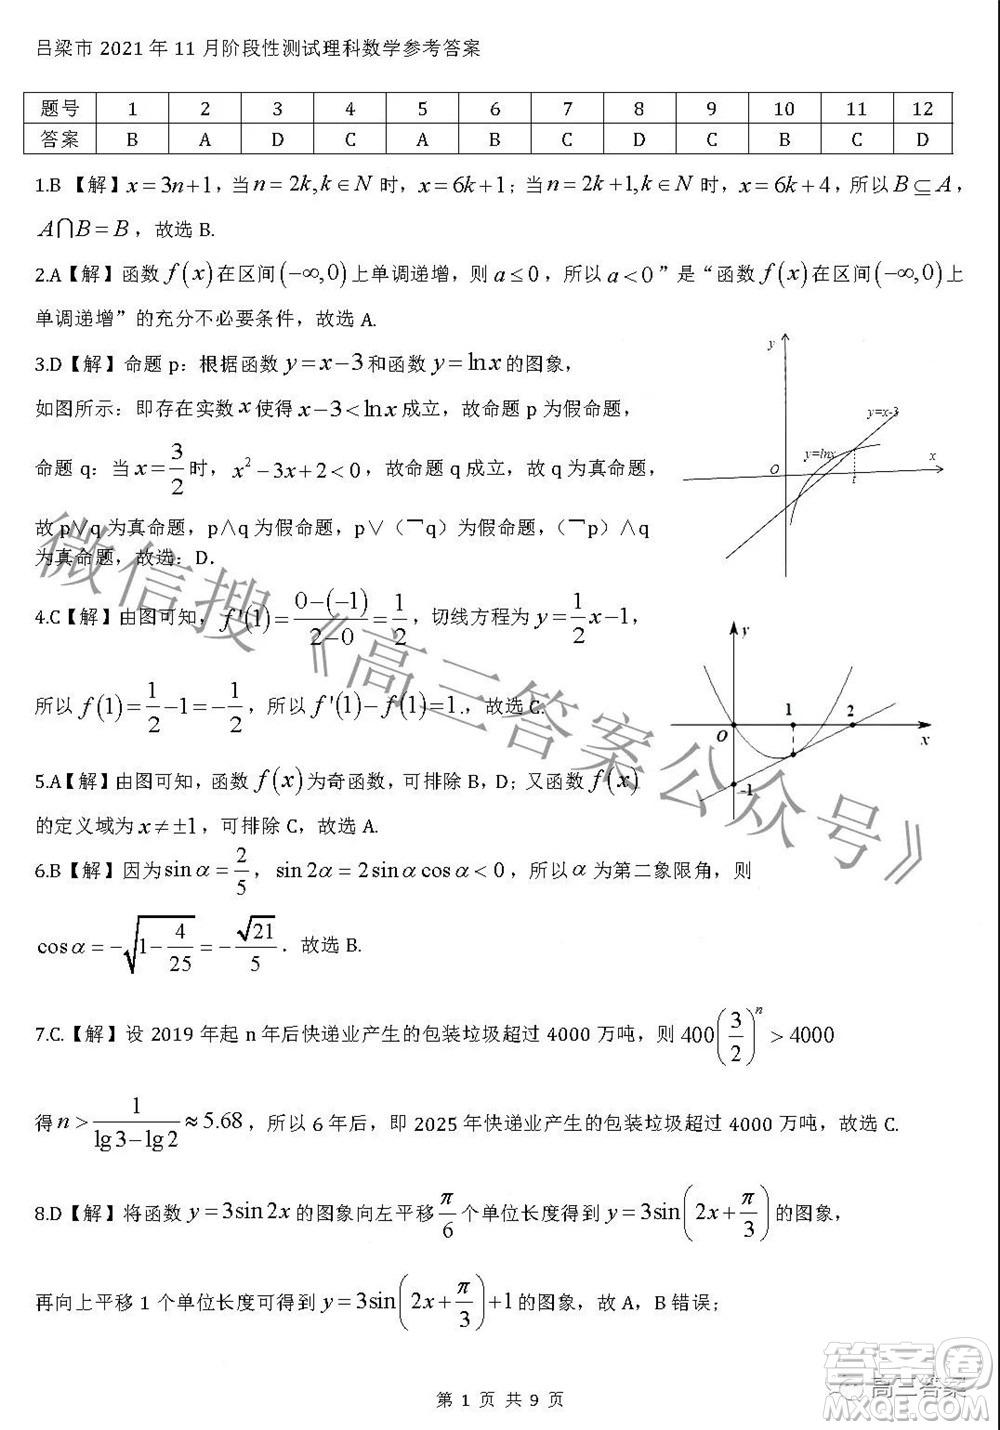 吕梁市 2021 年 11 月阶段性测试理科数学参考答案
题号 1 2 3 4 5 6 7 8 9 10 11 12
答案 B A D C A B C D C B C D
1.B 【解】x=3n+1，当 n=2k,k∈N 时，x=6k+1；当 n=2k+1,k∈N 时，x=6k+4，所以 B⊆A，
A∩B=B，故选 B.
2.A【解】函数 f(x) 在区间 (-∞,0) 上单调递增，则 a≤0，所以 a<0”是“函数 f(x) 在区间 (-∞,0) 上
单调递增”的充分不必要条件，故选 A.
3.D【解】命题 p：根据函数 y=x-3 和函数 y=lnx 的图象，
如图所示：即存在实数 x 使得 x-3<lnx 成立，故命题 p 为假命题，
命题 q：当 x=3/2 时，x²-3x+2<0，故命题 q 成立，故 q 为真命题，
故 p∨q 为真命题，p∧q 为假命题，p∨（￢q）为假命题，（￢p）∧q
为真命题，故选：D．
y
y=x-3
y=lnx
O
t
x
4.C【解】由图可知，f'(1)=(0-(-1))/(2-0)=1/2，切线方程为 y=1/2x-1，
所以 f(1)=1/2-1=-1/2，所以 f'(1)-f(1)=1.，故选 C.
y
1
2
O
x
-1
5.A【解】由图可知，函数 f(x) 为奇函数，可排除 B，D；又函数 f(x)
的定义域为 x≠±1，可排除 C，故选 A.
6.B【解】因为 sinα=2/5，sin2α=2sinαcosα<0，所以 α 为第二象限角，则
cosα=-√(1-4/25)=-√21/5．故选 B.
7.C.【解】设 2019 年起 n 年后快递业产生的包装垃圾超过 4000 万吨，则 400(3/2)ⁿ>4000
得 n>1/(lg3-lg2)≈5.68，所以 6 年后，即 2025 年快递业产生的包装垃圾超过 4000 万吨，故选 C.
8.D【解】将函数 y=3sin2x 的图象向左平移 π/6 个单位长度得到 y=3sin(2x+π/3) 的图象，
再向上平移 1 个单位长度可得到 y=3sin(2x+π/3)+1 的图象，故 A，B 错误；
第 1 页 共 9 页
微信搜《高三答案公众号》
高三答案
答案卷
MXQE.COM